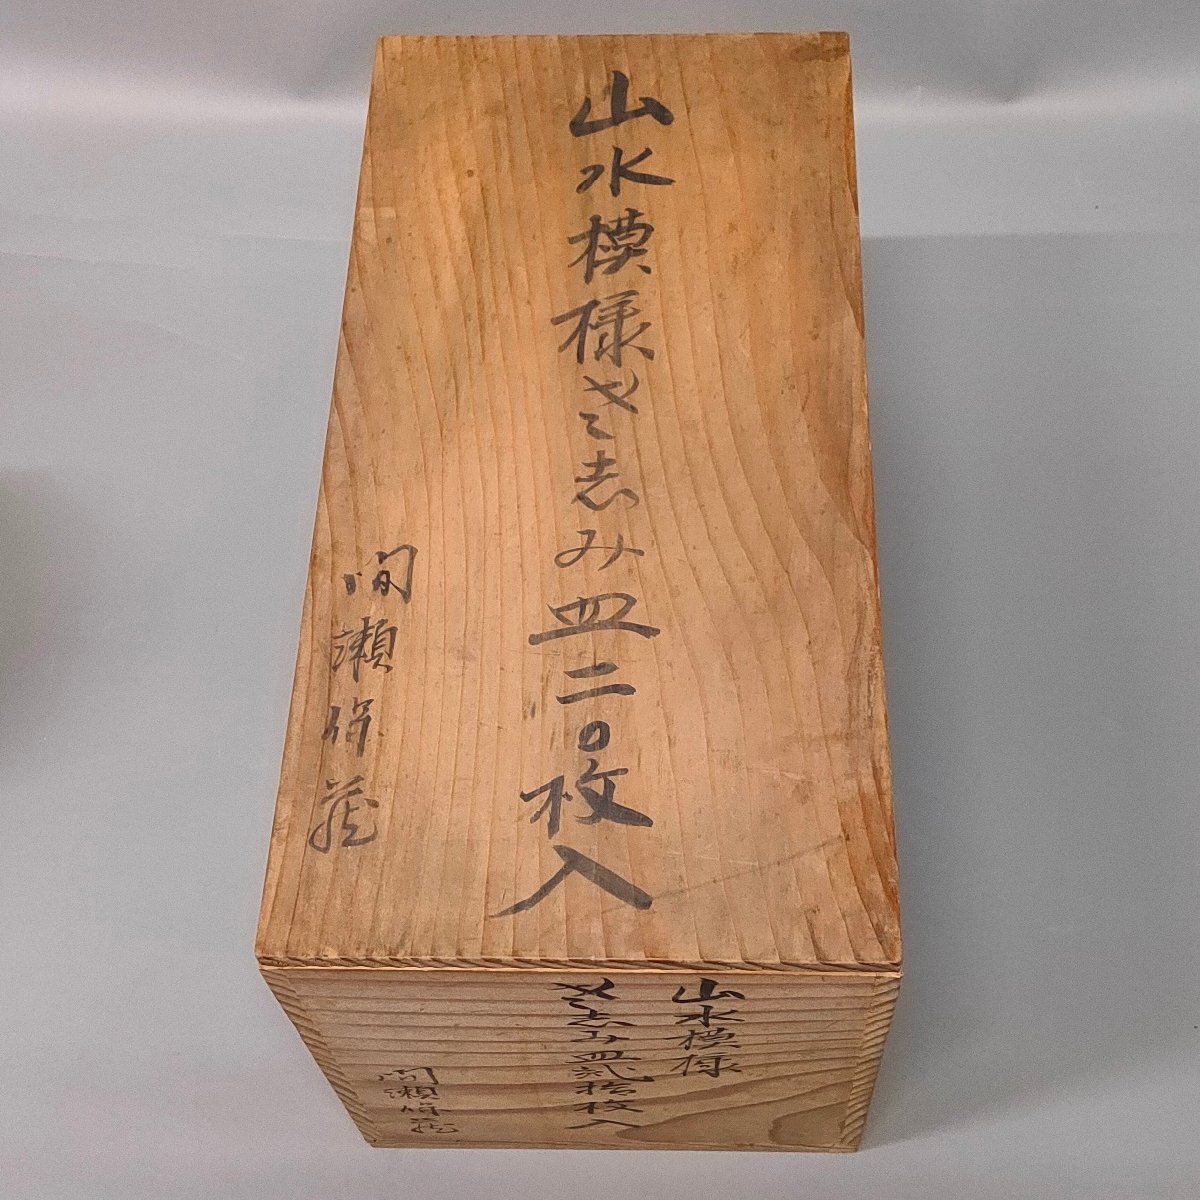 山水模様さしみ皿二〇枚入
間瀬保蔵
山水模様
さしみ皿弐拾枚入
間瀬保蔵